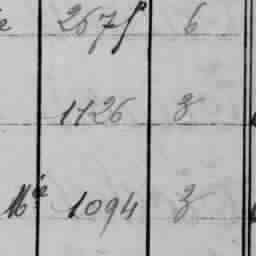 2675 6
1126 3
1094 3